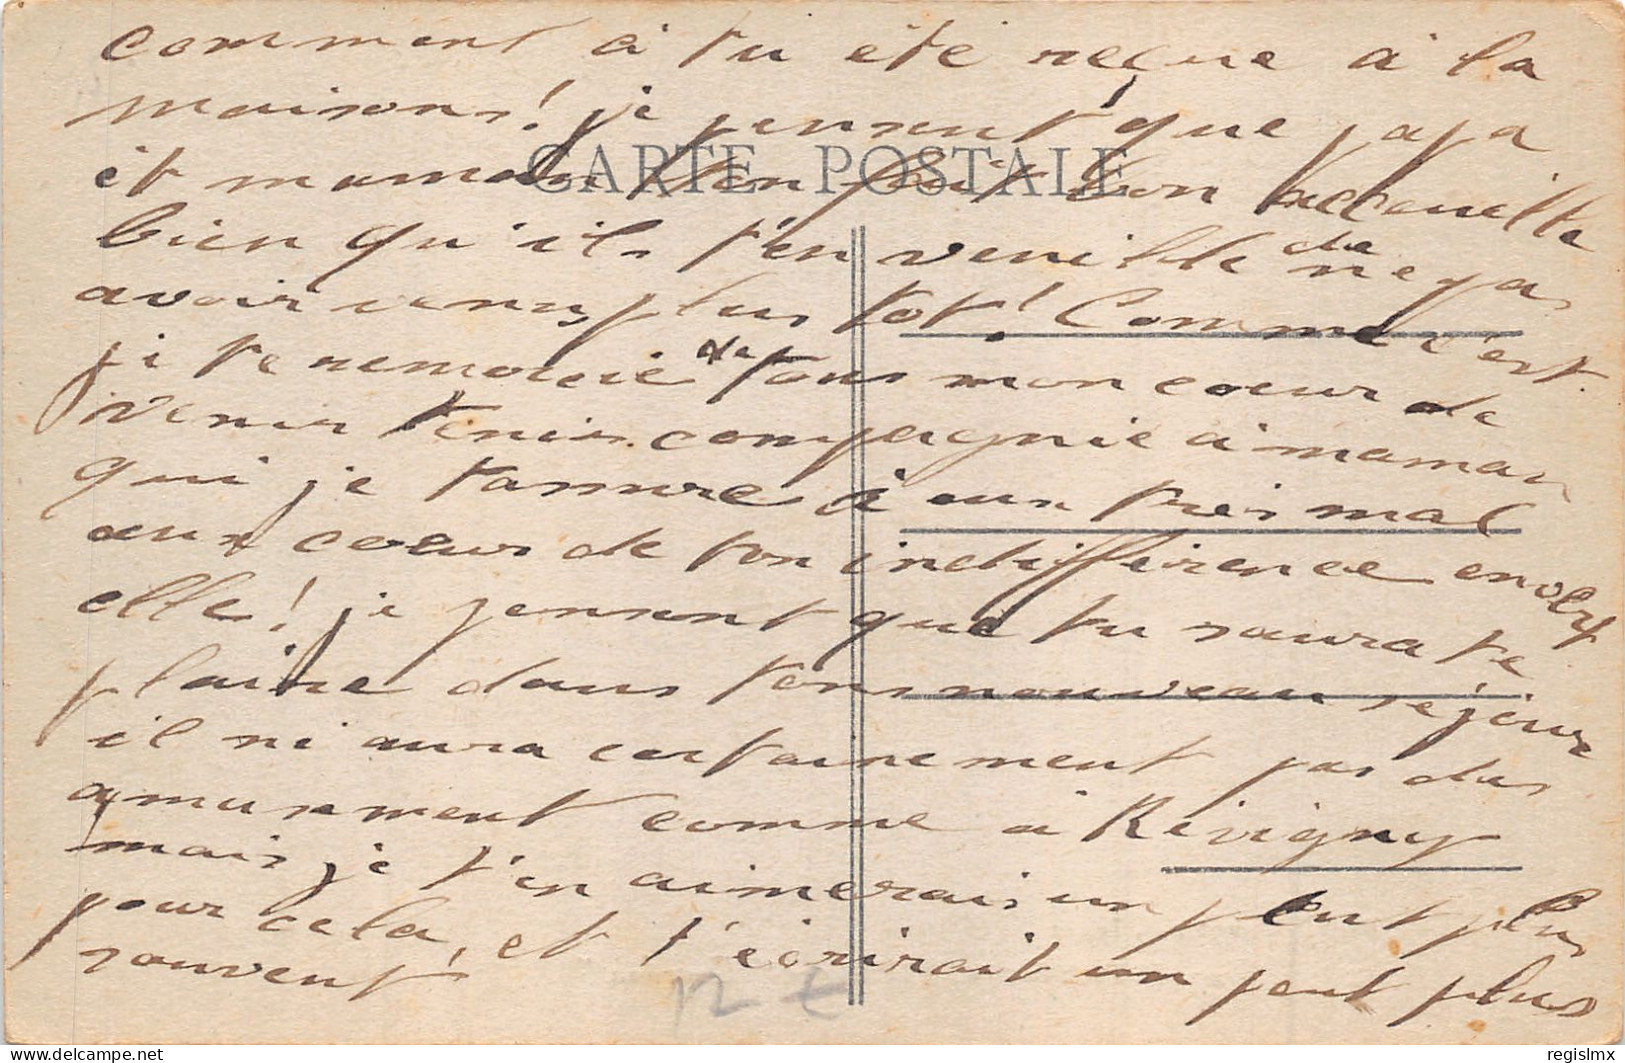 comment à tu été reçue à la
maisons! je pensent que papa
et maman t'en fait bon acceuille
bien qu'ils t'en veuille de ne pas
avoir venus plus tot! Comme c'est
CARTE POSTALE
je te remercie de tous mon coeur de
venir tenir compagnie à maman
qui je t'assure à eux très mal
aux coeur de ton indifférence envers
elle! je pensent que tu saura te
plaire dans tons nouveau séjour
il ni aura certainement pas des
amusement comme à Révigny
mais je t'en aimerais un peut plus
pour cela, et t'écrirait un peut plus
souvent
12 €
delcampe.net
regislmx